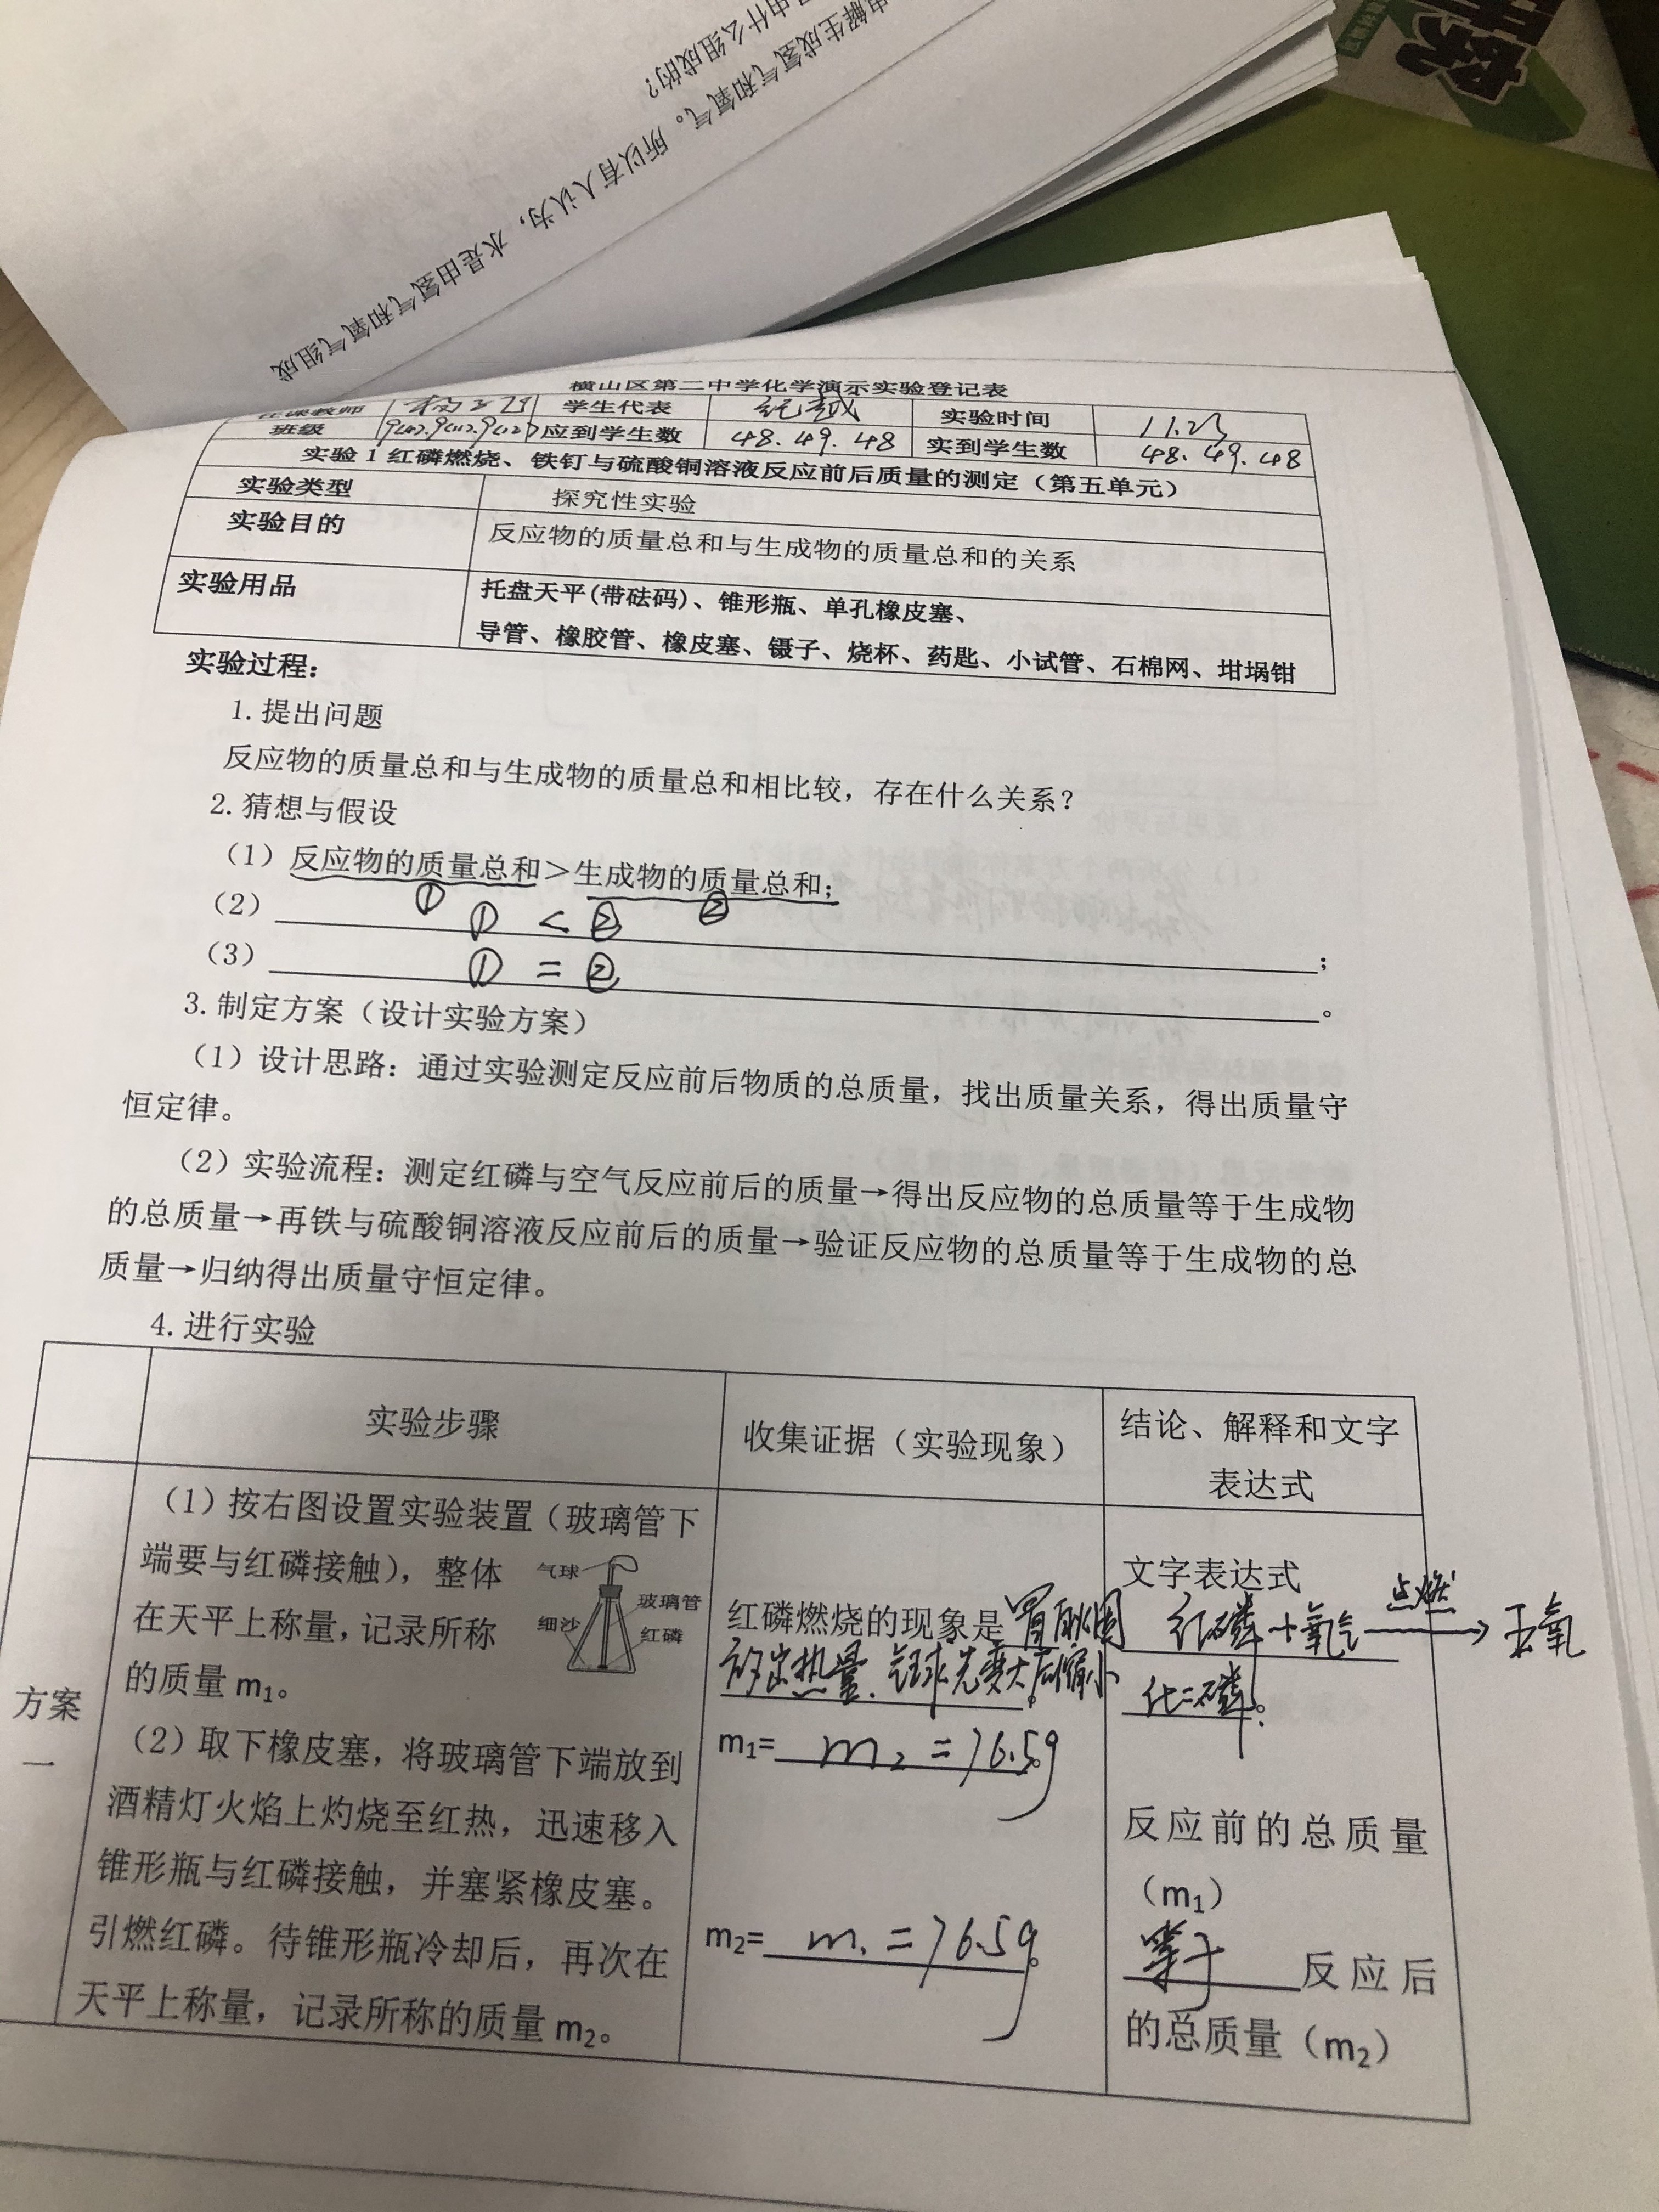 电解生成氢气和氧气。所以有人认为，水是由氢气和氧气组成
由什么组成的？
横山区第二中学化学演示实验登记表
任课教师 学生代表 纪越 实验时间 11.23
班级 应到学生数 48.49.48 实到学生数 48.49.48
实验1 红磷燃烧、铁钉与硫酸铜溶液反应前后质量的测定（第五单元）
实验类型 探究性实验
实验目的 反应物的质量总和与生成物的质量总和的关系
实验用品 托盘天平(带砝码)、锥形瓶、单孔橡皮塞、
导管、橡胶管、橡皮塞、镊子、烧杯、药匙、小试管、石棉网、坩埚钳
实验过程：
1.提出问题
反应物的质量总和与生成物的质量总和相比较，存在什么关系？
2.猜想与假设
（1）反应物的质量总和＞生成物的质量总和；
① ②
（2） ① < ② ；
（3） ① = ② 。
3.制定方案（设计实验方案）
（1）设计思路：通过实验测定反应前后物质的总质量，找出质量关系，得出质量守
恒定律。
（2）实验流程：测定红磷与空气反应前后的质量→得出反应物的总质量等于生成物
的总质量→再铁与硫酸铜溶液反应前后的质量→验证反应物的总质量等于生成物的总
质量→归纳得出质量守恒定律。
4.进行实验
实验步骤 收集证据（实验现象） 结论、解释和文字
表达式
方案
一
（1）按右图设置实验装置（玻璃管下
端要与红磷接触），整体
在天平上称量，记录所称
的质量 m₁。
气球
玻璃管
细沙
红磷
（2）取下橡皮塞，将玻璃管下端放到
酒精灯火焰上灼烧至红热，迅速移入
锥形瓶与红磷接触，并塞紧橡皮塞。
引燃红磷。待锥形瓶冷却后，再次在
天平上称量，记录所称的质量 m₂。
红磷燃烧的现象是冒白烟
放出热量.气球先变大后缩小。
m₁= m₂ = 76.5g。
m₂= m₁ = 76.5g。
文字表达式
红磷+氧气 点燃→ 五氧
化二磷。
反应前的总质量
（m₁）
等于 反应后
的总质量（m₂）